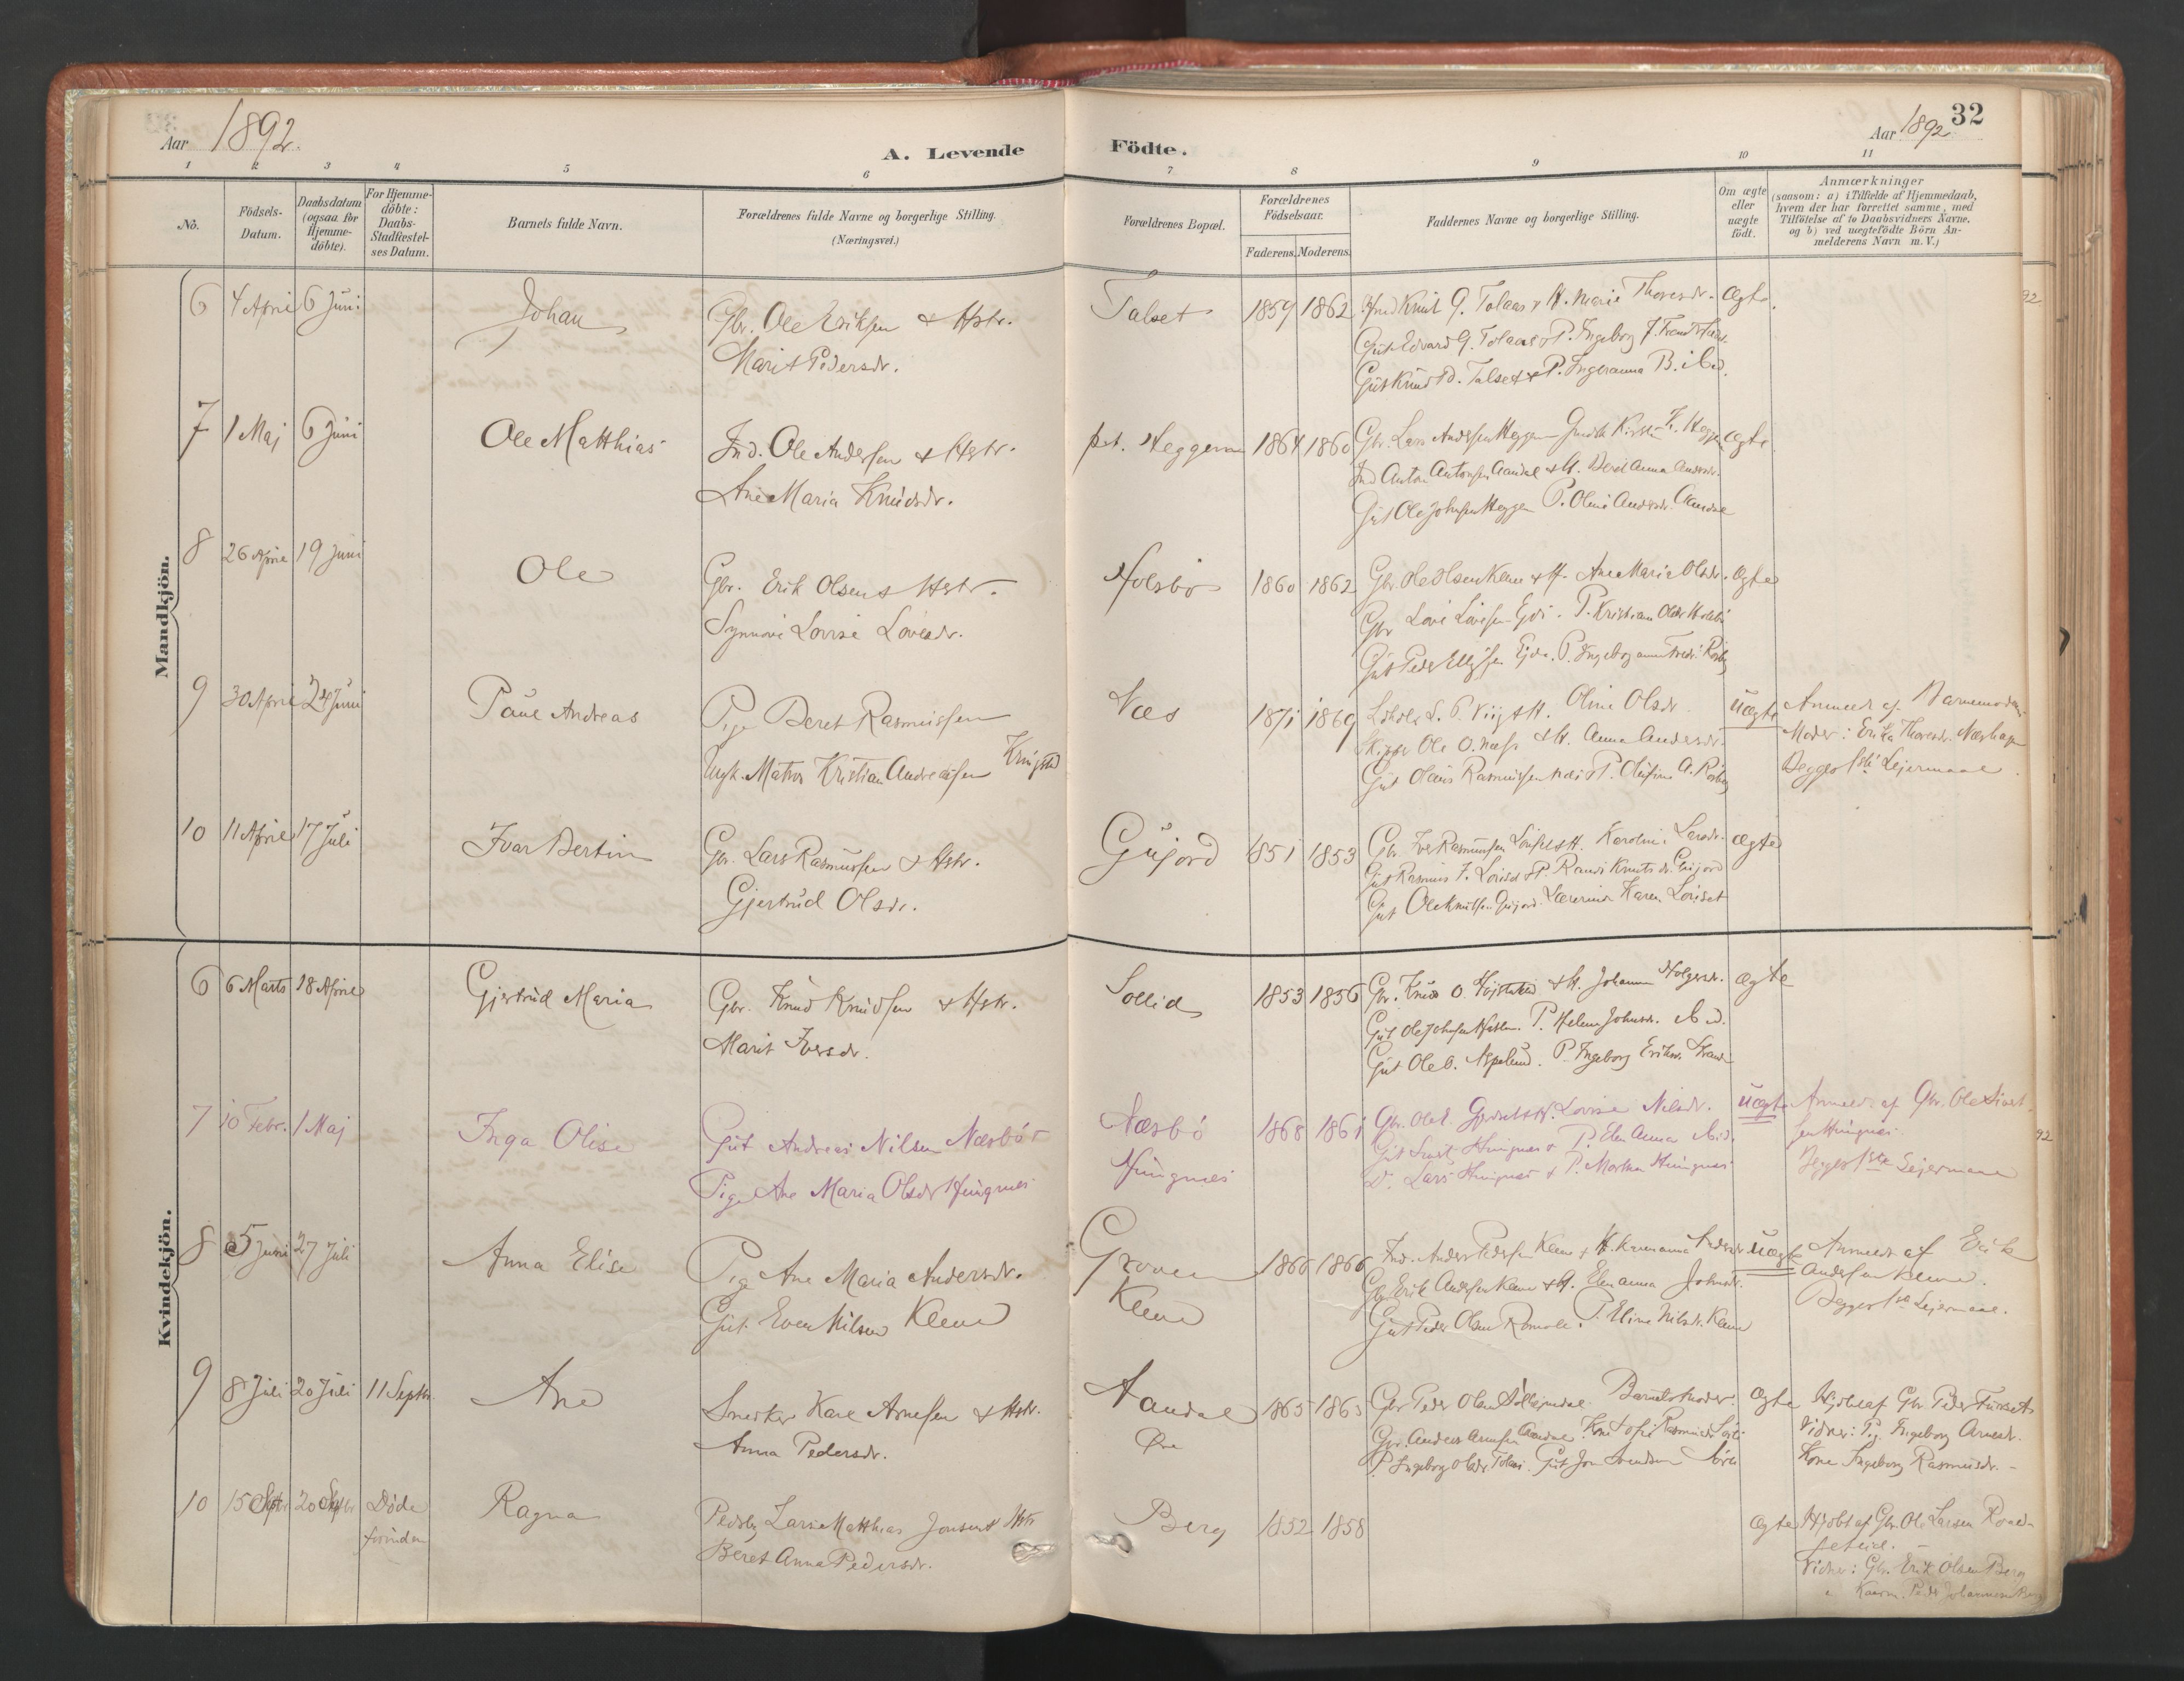 Aar 1892.
A. Levende Födte.
Aar 1892 32
1 2 3 4 5 6 7 8 9 10 11
No.
Födsels-
Datum.
Daabsdatum
(ogsaa for
Hjemme-
döbte).
For Hjemme-
döbte:
Daabs-
Stadfæstel-
ses Datum.
Barnets fulde Navn.
Forældrenes fulde Navne og borgerlige Stilling.
(Næringsvei.)
Forældrenes Bopæl.
Forældrenes
Födselsaar.
Faderens. Moderens.
Faddernes Navne og borgerlige Stilling.
Om ægte
eller
uægte
födt.
Anmærkninger
(saasom: a) i Tilfælde af Hjemmedaab,
hvem der har forrettet samme, med
Tilföielse af to Daabsvidners Navne,
og b) ved uægtefödte Börn An-
melderens Navn m. V.)
Mandkjön.
6 4 April 6 Juni Johan
Gbr. Ole Eriksen & Hstr.
Marit Pedersdr.
Talset 1859 1862
Knut G. Tolaas & H. Marie Thoresdr.
Gut Edvard G. Tolaas & P. Ingeborg
Gut Knud P. Talset & P. Ingeranna B. ibd.
ægte.
7 1 Maj 6 Juni Ole Matthias
Ind. Ole Andersen & Hstr.
Ane Maria Knudsdr.
pt. Heggem 1864 1860
Gbr. Lars Andersen Heggem
Ind Anton Antonsen Aandal & H. Beret Anna Andersdr.
Gut Ole Johnsen Heggem P. Oline Andersdr. Aandal
ægte.
8 26 April 19 Juni Ole
Gbr. Erik Olsen & Hstr.
Synnøvi Lovise Lovisdr.
Holsbø 1860 1862
Gbr. Ole Olsen Kleve & H. Ane Maria Olsdr.
Gbr Lovi Lovisen P. Kristian
Gut Peder
ægte
9 30 April 24 Juni Paul Andreas
Pige Beret Rasmussen
Ungk. Matros Kristian Andreassen Kringstad
Næs 1871 1869
H. Oline Olsdr.
Skipper Ole O. Næss & H. Anna Andersdr.
Gut Olaus Rasmussen & P. Olufine A.
uægte
Anmeldt af Barnemoderens
Moder: Erika Thoresdr. Næshagen
Begges 1ste Lejermaal.
10 11 April 17 Juli Ivar Bertin
Gbr. Lars Rasmussen & Hstr.
Gjertrud Olsdr.
Gujord 1851 1853
Gbr. Iver Rasmussen Loiset & H. Karolini Larsdr.
Gut Rasmus I. Loiset & P. Randi Knutsdr. Gujord
Gut Ole Knutsen Gujord. Lærerinde Karen Loiset
ægte
Kvindekjön.
6 6 Marts 18 April Gjertrud Maria
Gbr. Knud Knudsen & Hstr.
Marit Iversdr.
Sollid 1853 1856
Gbr. Knud O. & H. Johanna Holgersdr.
Gut Ole Johnsen P. Helene Johnsdr. ibd.
Gut Ole O. Aspelund. P. Ingeborg Eriksdr.
ægte
7 10 Febr. 1 Maj Inga Olise
Gut Andreas Nilsen Næsbø
Pige Ane Maria Olsdr Hungnes
Næsbø
Hungnes
1868 1861
Gbr. Ole & H. Lovise Nilsdr.
Gut Sivert Hungnes & P. Elen Anna ibid.
D. Lars Hungnes & P. Martha Hungnes
uægte
Anmeldt af Gbr. Ole Sivert-
sen Hungnes.
Begges 1ste Lejermaal
8 5 Juni 27 Juli Anna Elise
Pige Ane Maria Andersdr.
Gut. Even Nilsen Kleve
Groven
Kleve
1866 1866
Ind. Anders Pedersen Kleve & H. Karenanna Andersdr.
Gbr Erik Andersen Kleve & H. Elenanna Johnsdr.
Gut Peder Olsen P. Eline Nilsdr. Kleve
uægte
Anmeldt af Erik
Andersen Kleve.
Begges 1ste Lejermaal.
9 8 Juli 20 Juli 11 Septbr. Ane
Snedker Karl Arnesen & Hstr.
Anna Pedersdr.
Aandal
Øre
1865 1863
Gbr Peder Olsen Barnets Moder.
Gbr. Anders Arnesen Aandal Kone
P. Ingeborg Olsdr. Gut Jon
ægte
Hjdbt af Gbr. Peder Furset
Vidner: Pig. Ingeborg Arnesdr.
Kone Ingeborg Rasmusdr.
10 15 Septbr 20 Septbr Døde
forinden
Ragna
Lars Matthias Jonsen & Hstr
Beret Anna Pedersdr.
Berg 1852 1858
ægte
Hjdbt af Gbr. Ole Larsen
Vidner: Gbr. Erik Olsen Berg
Peder Johannesen Berg